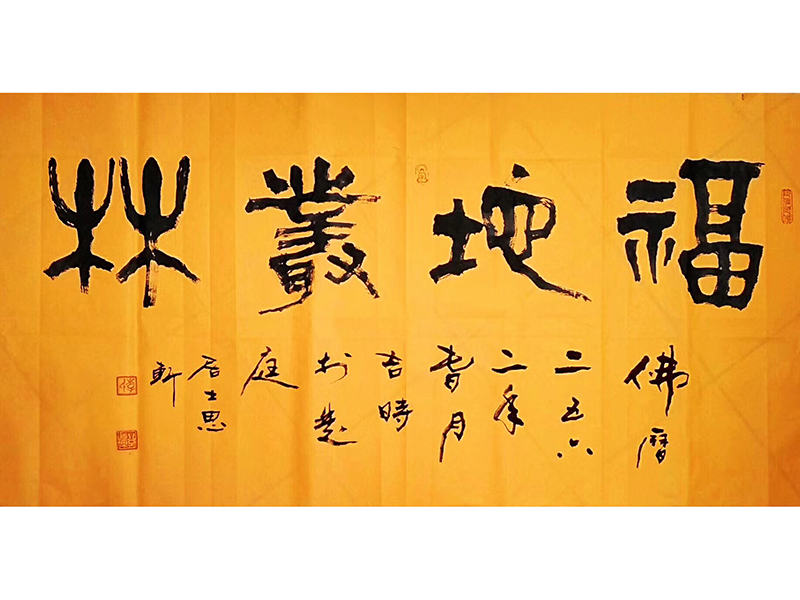 福地叢林
佛曆
二五六
二年
月
吉時
於楚
庭
居士思
軒